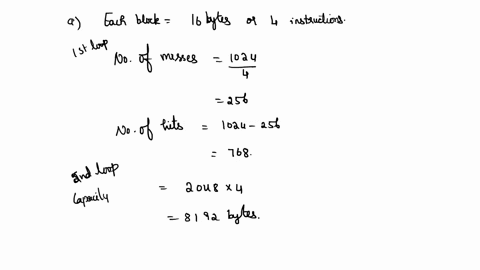 a) Each block = 16 bytes or 4 instructions.
1st loop
No. of misses = 1024/4
= 256
No. of hits = 1024 - 256
= 768.
2nd loop
Capacity = 2048 x 4
= 8192 bytes.